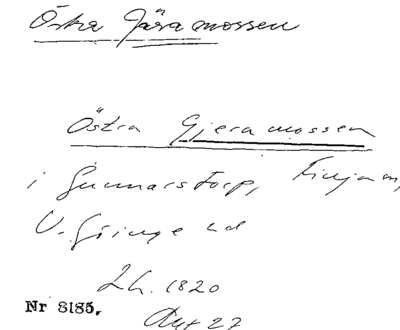 Östra Jära mossen
Östra Gjera mossen
i Gunnarstorp, Finja sn,
V. Göinge hd
Lh. 1820
Akt 27
Nr 8185.